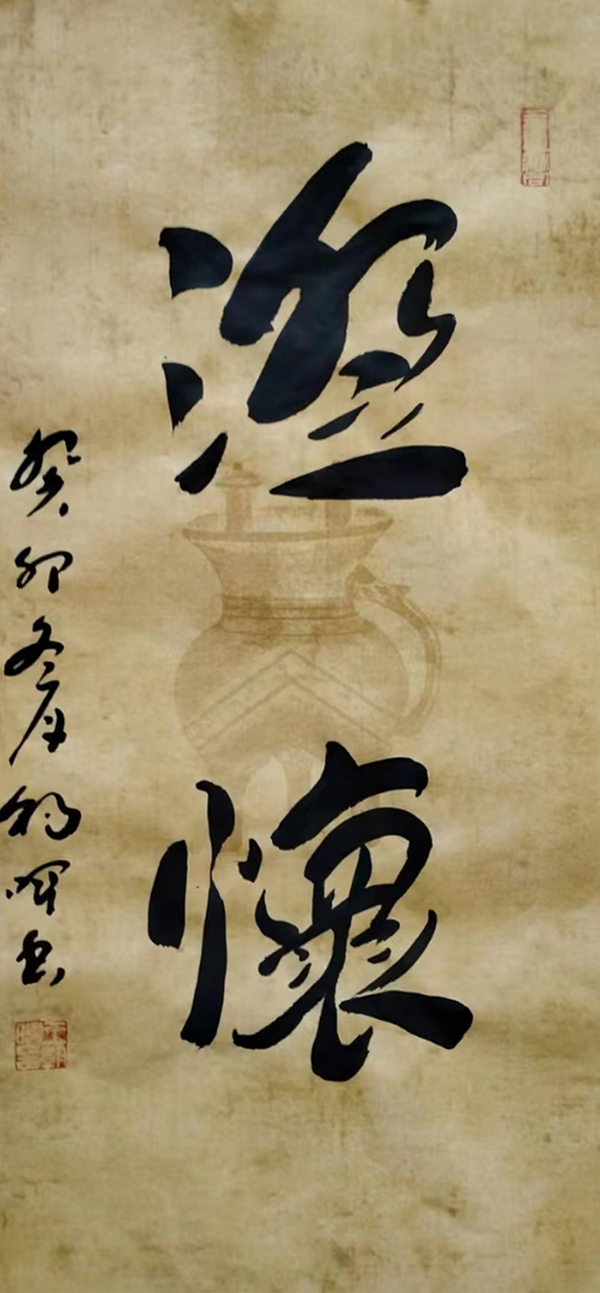 澄懷
癸卯冬月 暉書